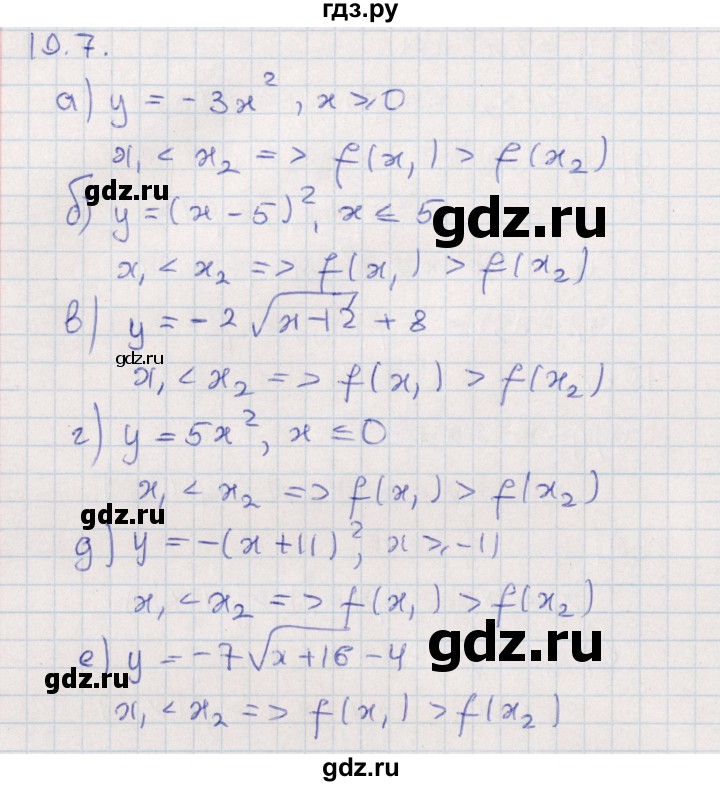 гдз.ру
19.7.
а) y = -3x², x ≥ 0
x₁ < x₂ => f(x₁) > f(x₂)
gdz.ru
б) y = (x - 5)², x ≤ 5
gdz.ru
x₁ < x₂ => f(x₁) > f(x₂)
в) y = -2√(x-12) + 8
gdz.ru
x₁ < x₂ => f(x₁) > f(x₂)
г) y = 5x², x ≤ 0
x₁ < x₂ => f(x₁) > f(x₂)
gdz.ru
д) y = -(x+11)², x ≥ -11
x₁ < x₂ => f(x₁) > f(x₂)
gdz.ru
е) y = -7√(x+16) - 4
gdz.ru
x₁ < x₂ => f(x₁) > f(x₂)
gdz.ru